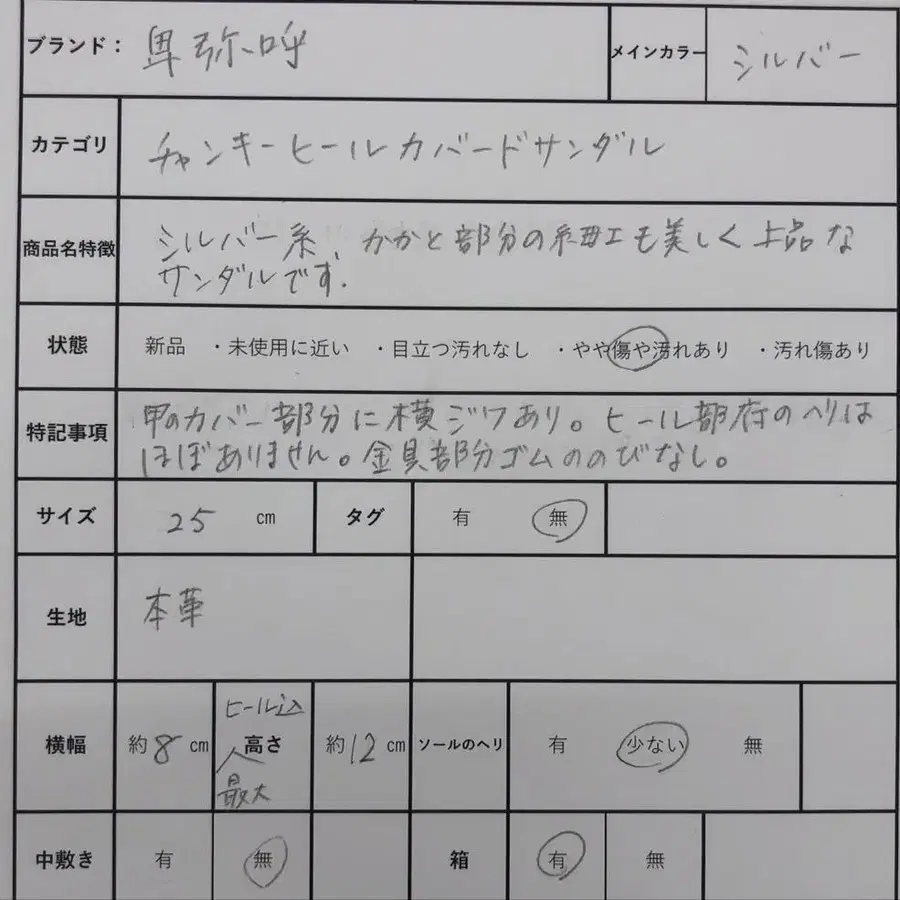 ブランド： 卑弥呼 メインカラー シルバー
カテゴリ チャンキーヒールカバードサンダル
商品名特徴 シルバー系、かかと部分の細工も美しく上品な
サンダルです.
状態 新品 ・未使用に近い ・目立つ汚れなし ・やや傷や汚れあり ・汚れ傷あり
特記事項 甲のカバー部分に横ジワあり。ヒール部府のヘリは
ほぼありません。金具部分ゴムののびなし。
サイズ 25 cm タグ 有 無
生地 本革
横幅 約8cm ヒール込 高さ 最大 約12cm ソールのヘリ 有 少ない 無
中敷き 有 無 箱 有 無